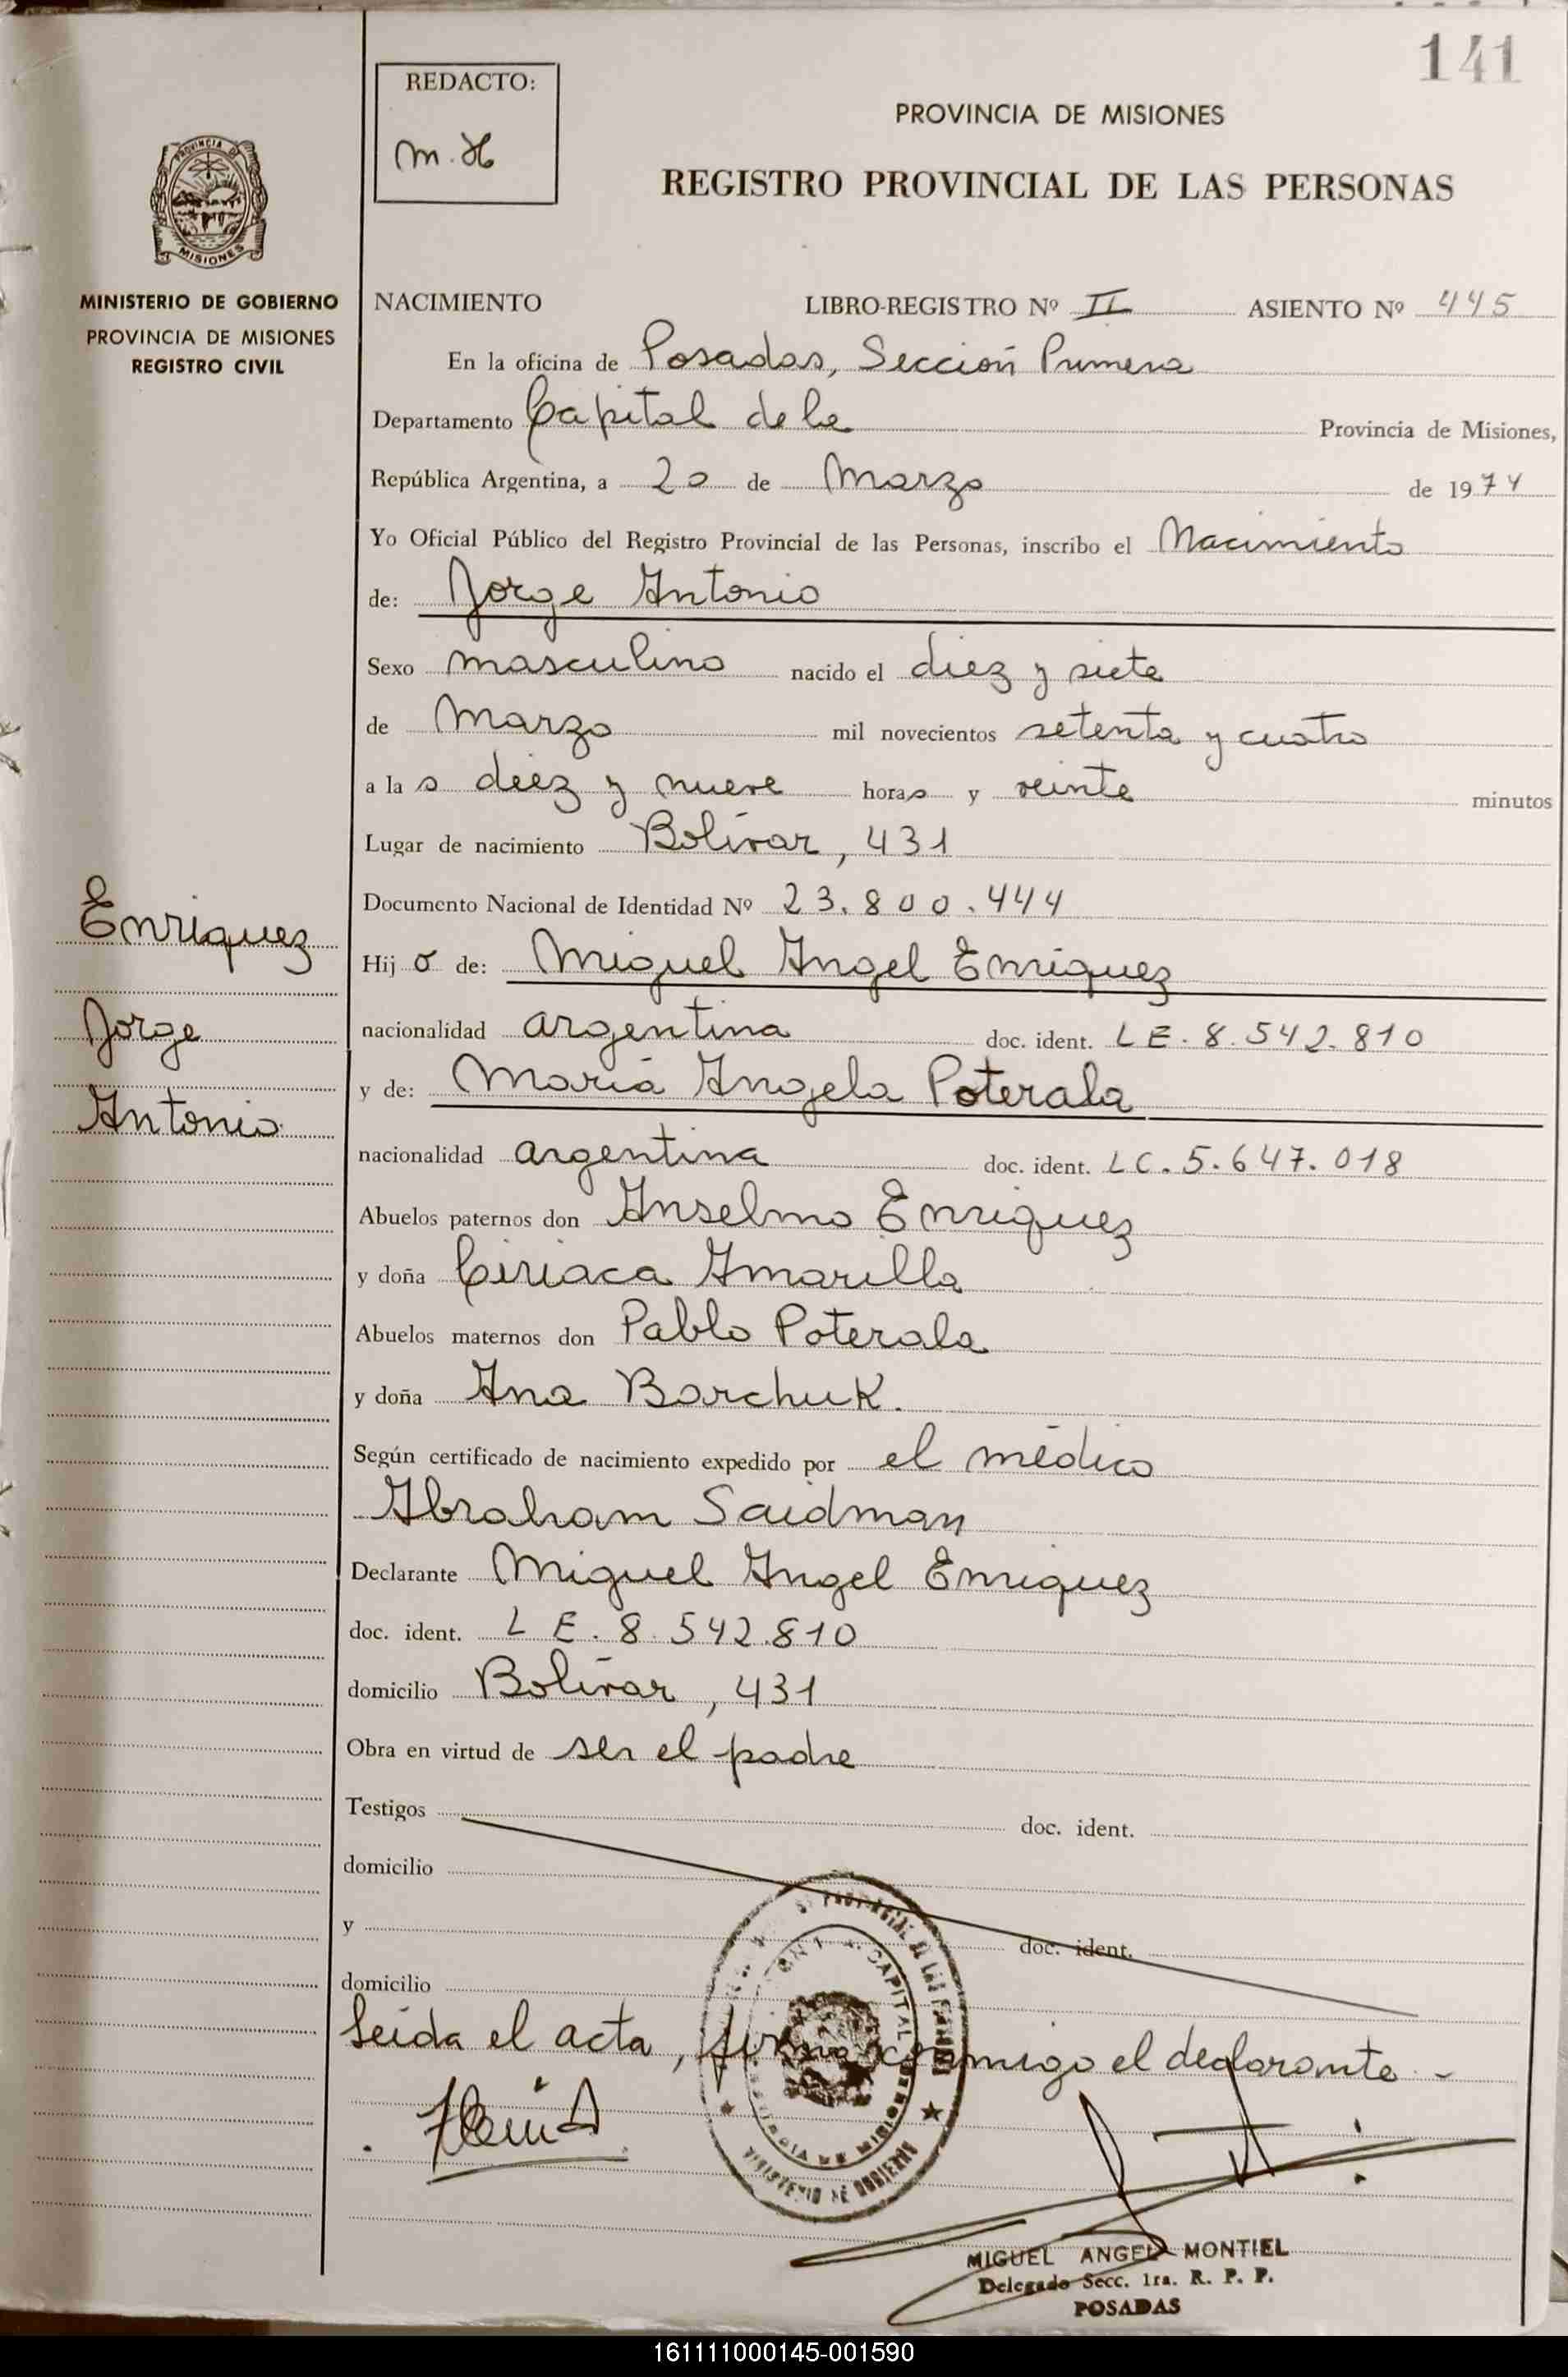 141
REDACTO:
m.H
PROVINCIA DE MISIONES
REGISTRO PROVINCIAL DE LAS PERSONAS
PROVINCIA DE
MISIONES
MINISTERIO DE GOBIERNO
PROVINCIA DE MISIONES
REGISTRO CIVIL
NACIMIENTO LIBRO-REGISTRO Nº II ASIENTO Nº 445
En la oficina de Posadas, Sección Primera
Departamento Capital de la Provincia de Misiones,
República Argentina, a 20 de Marzo de 1974
Yo Oficial Público del Registro Provincial de las Personas, inscribo el Nacimiento
de: Jorge Antonio
Sexo masculino nacido el diez y siete
de Marzo mil novecientos setenta y cuatro
a las diez y nueve horas y veinte minutos
Lugar de nacimiento Bolívar, 431
Documento Nacional de Identidad Nº 23.800.444
Enriquez
Jorge
Antonio
Hijo de: Miguel Angel Enriquez
nacionalidad argentina doc. ident. LE. 8.542.810
y de: María Angela Poterala
nacionalidad argentina doc. ident. LC. 5.647.018
Abuelos paternos don Anselmo Enriquez
y doña Ciriaca Amarilla
Abuelos maternos don Pablo Poterala
y doña Ana Barchuk.
Según certificado de nacimiento expedido por el médico
Abraham Saidman
Declarante Miguel Angel Enriquez
doc. ident. LE. 8.542.810
domicilio Bolívar, 431
Obra en virtud de ser el padre
Testigos doc. ident.
domicilio
y doc. ident.
domicilio
Leída el acta, firma conmigo el declarante.-
CAPITAL
MINISTERIO DE GOBIERNO
MIGUEL ANGEL MONTIEL
Delegado Secc. 1ra. R. P. P.
POSADAS
161111000145-001590